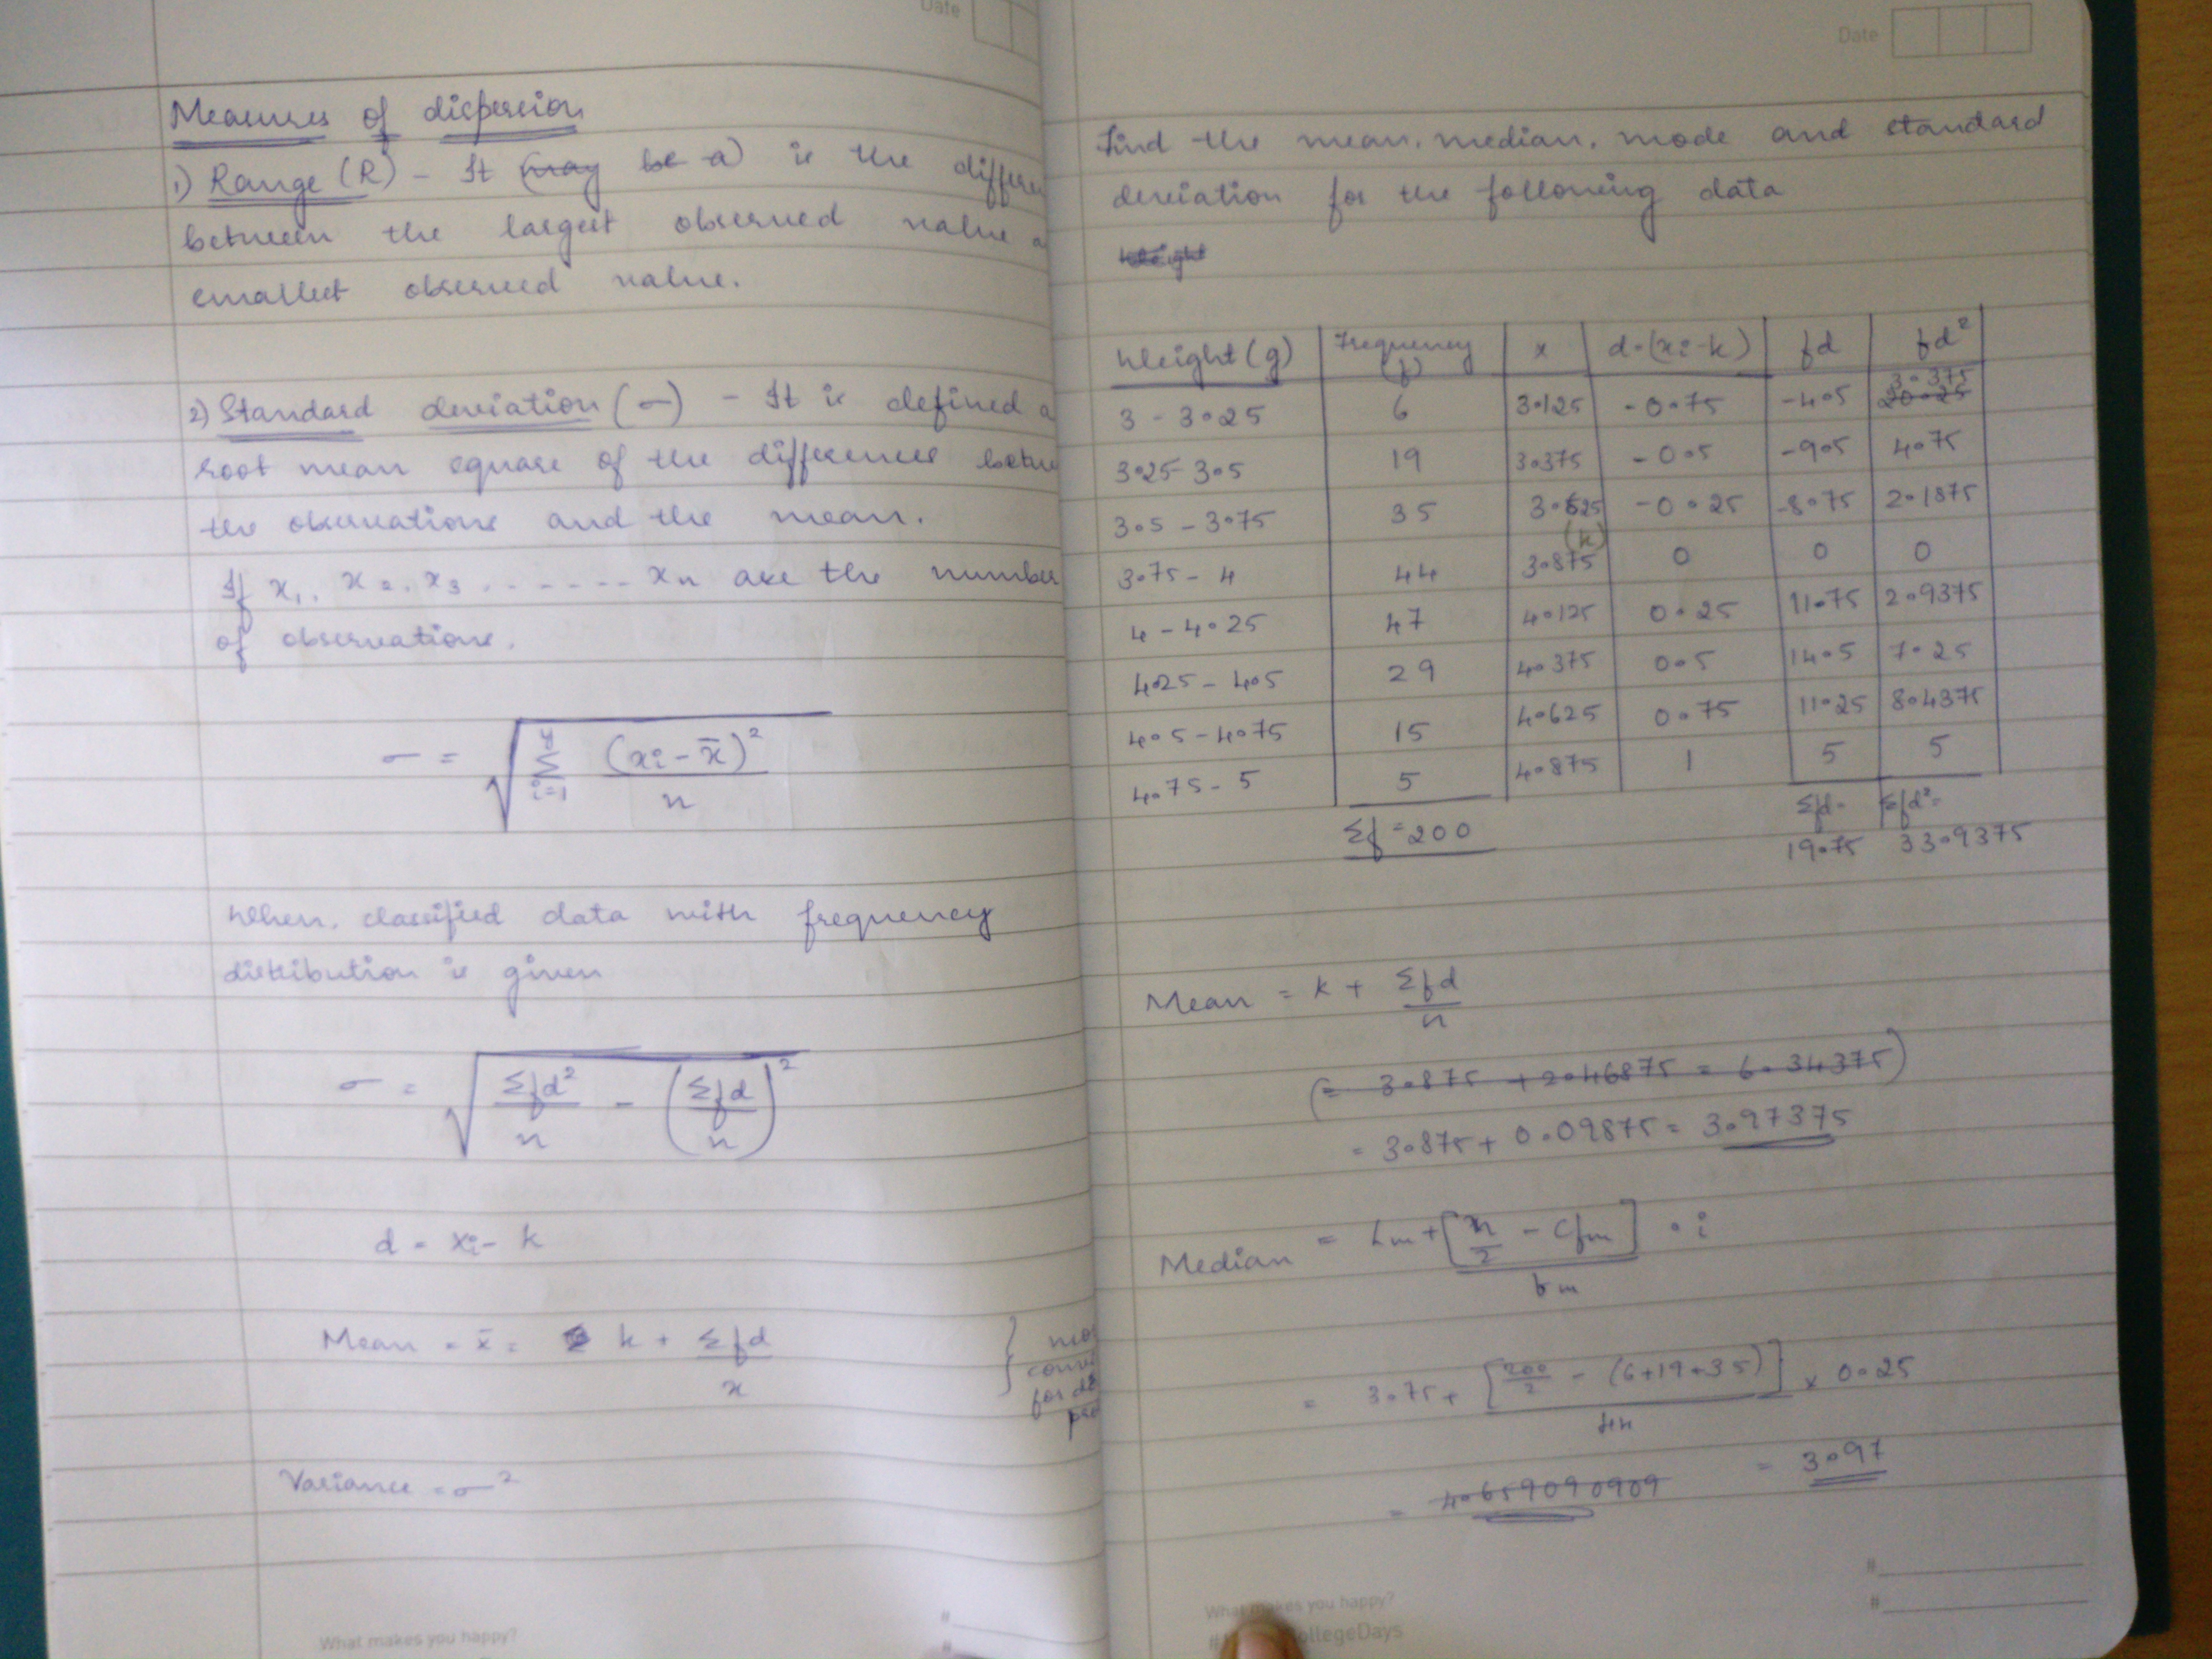 Date
Measures of dispersion
1) Range (R) - It (may be a) is the differen
between the largest observed value a
smallest observed value.
2) Standard deviation (σ) - It is defined a
root mean square of the differences betwe
the observations and the mean.
If x₁, x₂, x₃, ....... xₙ are the number
of observations.
σ = √ Σ i=1 (xi - x̄)² / n
When classified data with frequency
distribution is given
σ = √ Σfd²/n - (Σfd/n)²
d = xi - k
Mean = x̄ = k + Σfd/x
Variance = σ²
What makes you happy?
#
#
Date
Find the mean, median, mode and standard
deviation for the following data
Weight
Weight (g) Frequency (f) x d=(xi-k) fd fd²
3 - 3.25 6 3.125 -0.75 -4.5 20.25 3.375
3.25-3.5 19 3.375 -0.5 -9.5 4.75
3.5 - 3.75 35 3.625 -0.25 -8.75 2.1875
3.75 - 4 44 (k) 3.875 0 0 0
4 - 4.25 47 4.125 0.25 11.75 2.9375
4.25 - 4.5 29 4.375 0.5 14.5 7.25
4.5 - 4.75 15 4.625 0.75 11.25 8.4375
4.75 - 5 5 4.875 1 5 5
Σf = 200 Σfd= 19.75 Σfd²= 33.9375
Mean = k + Σfd/n
(= 3.875 + 2.46875 = 6.34375)
= 3.875 + 0.09875 = 3.97375
Median = Lm + [n/2 - Cfm]/fm . i
= 3.75 + [200/2 - (6+19+35)]/44 × 0.25
= 4.659090909 = 3.97
What makes you happy?
#
#
ollegeDays